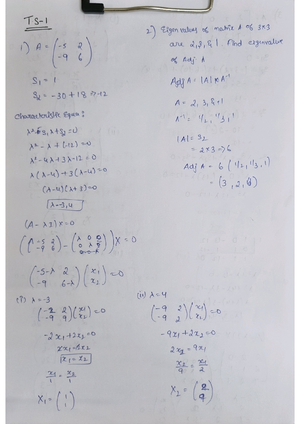 TS-1
1) A = (-5 2
-9 6)
S₁ = 1
S₂ = -30 + 18 => -12
Characteristic Eqn:
λ² - S₁λ + S₂ = 0
λ² - λ + (-12) = 0
λ² - 4λ + 3λ - 12 = 0
λ(λ-4) + 3(λ-4) = 0
(λ-4)(λ+3) = 0
λ = -3, 4
(A - λI)X = 0
X = 0
(-5-λ 2
-9 6-λ) (x₁
x₂) = 0
(i) λ = -3
(-2 2
-9 9) (x₁
x₂) = 0
-2x₁ + 2x₂ = 0
x₁ = x₂
x₁/1 = x₂/1
X₁ = (1
1)
(ii) λ = 4
(-9 2
-9 2) (x₁
x₂) = 0
-9x₁ + 2x₂ = 0
2x₂ = 9x₁
x₂/9 = x₁/2
X₂ = (2
9)
2) Eigen values of matrix A of 3x3
are 2, 3, 1 find eigenvalue
of Adj A
Adj A = |A| A⁻¹
A = 2, 3, 1
A⁻¹ = 1/2, 1/3, 1
|A| =
= 2x3 => 6
Adj A = 6 (1/2, 1/3, 1)
= (3, 2, 6)